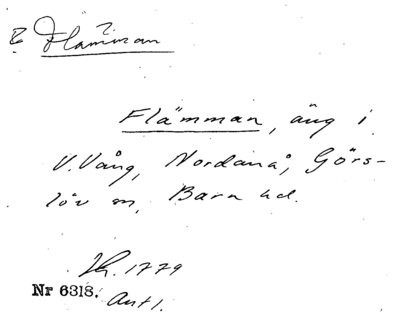 Flämman
Flämman, äng i
V. Vång, Nordanå, Görs-
löv sn, Bara hd.
1779
Nr 6318. Ant 1.